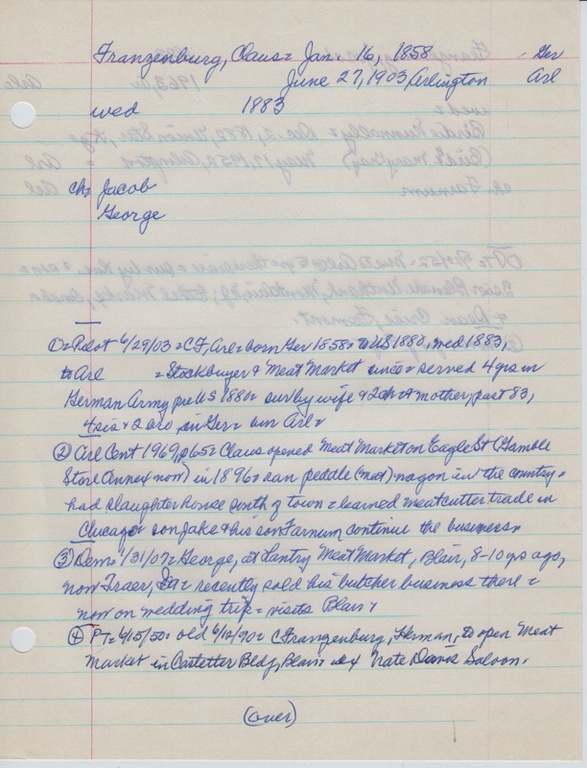 Franzenburg, Claus = Jan. 16, 1858 Ger
June 27, 1903, Arlington Arl
wed 1883
ch = Jacob
George
O = Pilot 6/29/03 = CF, Arl = born Ger 1858 = to US 1880, wed 1883,
to Arl = Stockbuyer & Meat Market since = served 4 yrs in
German Army pre US 1880 = surv by wife & 2 ch & mother, past 83,
4 sis & 2 bro in Ger = bur Arl =
② Arl Cent 1969, p65 = Claus opened Meat Market on Eagle St (Gamble
Store Annex now) in 1896 = ran peddle (meat) wagon in the country =
had slaughter house south of town = learned meatcutter trade in
Chicago = son Jake & his son Farnum continue the business
③ Dem = 1/31/07 = George, at Lantry Meat Market, Blair, 8-10 yrs ago,
now Traer, Ia = recently sold his butcher business there =
now on wedding trip = visits Blair
④ PT = 6/15/50 = old 6/12/90 = C Franzenburg, Herman, to open Meat
Market in Castetter Bldg, Blair Nate Davis Saloon.
(over)